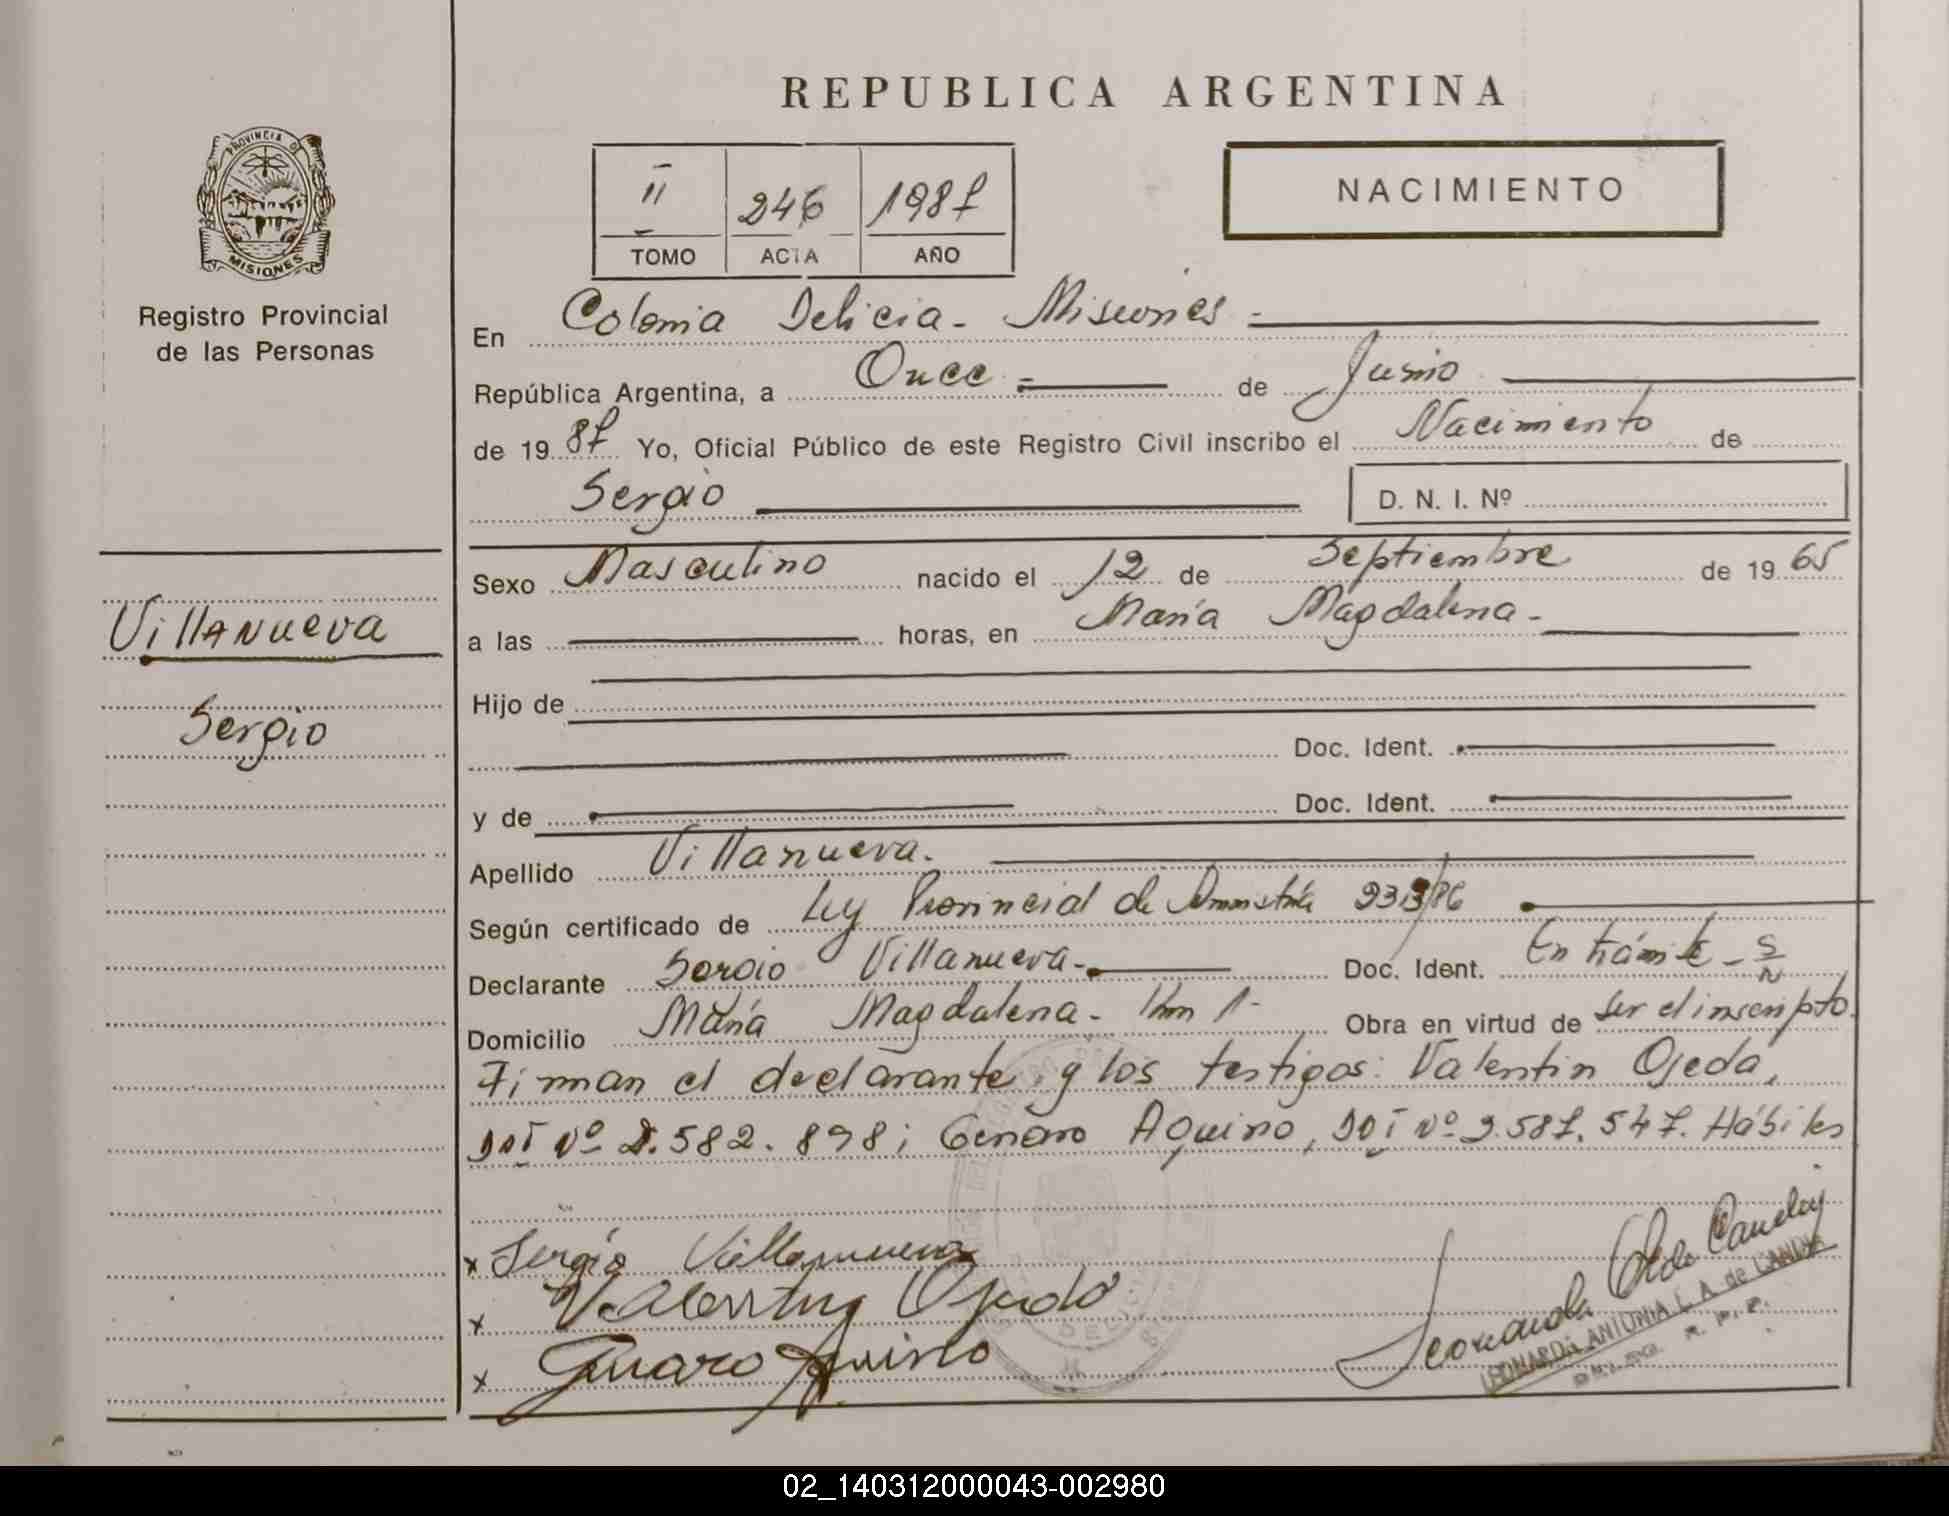 REPUBLICA ARGENTINA
PROVINCIA DE
MISIONES
Registro Provincial
de las Personas
II 246 1987
TOMO ACTA AÑO
NACIMIENTO
En Colonia Delicia - Misiones -
República Argentina, a Once = de Junio
de 19 87 Yo, Oficial Público de este Registro Civil inscribo el Nacimiento de
Sergio D. N. I. Nº
Sexo Masculino nacido el 12 de Septiembre de 19 65
Villanueva
a las horas, en María Magdalena -
Sergio
Hijo de
Doc. Ident.
y de Doc. Ident.
Apellido Villanueva.
Según certificado de Ley Provincial de Amnistía /86
Declarante Sergio Villanueva - Doc. Ident. En trámite - S/N
Domicilio María Magdalena - Km 1 - Obra en virtud de ser el inscripto.
Firman el declarante y los testigos: Valentin Ojeda,
DNI Nº .582.898; Genaro Aquino, DNI Nº .587.547. Hábiles
x Sergio Villanueva
x Valentin Ojeda
x Genaro Aquino
LEONARDA ANTONIA C. A. de CANDIA
R. P. P.
02_140312000043-002980